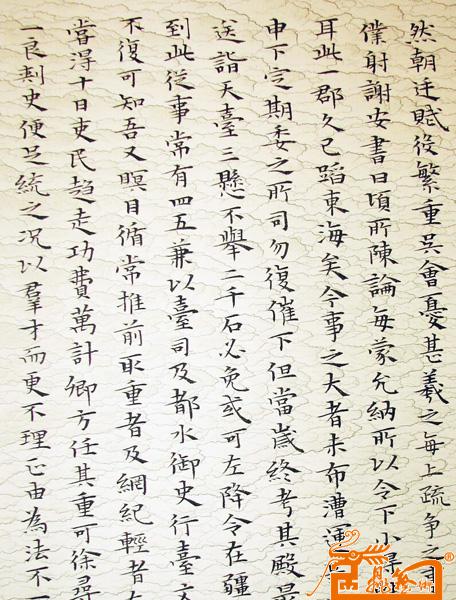 然朝廷賦役繁重吳會憂甚羲之每上疏爭之
僕射謝安書曰頃所陳論每蒙允納所以令下小得
耳此一郡久已蹈東海矣今事之大者未布漕運
申下定期委之所司勿復催下但當歲終考其殿最
送詣天臺三懸不舉二千石必免或可左降令在疆
到此從事常有四五兼以臺司及都水御史行臺文
不復可知吾又瞑目循常推前取重者及綱紀輕者在
當得十日吏民趨走功費萬計卿方任其重可徐尋
一良刺史便足統之況以羣才而更不理正由為法不一